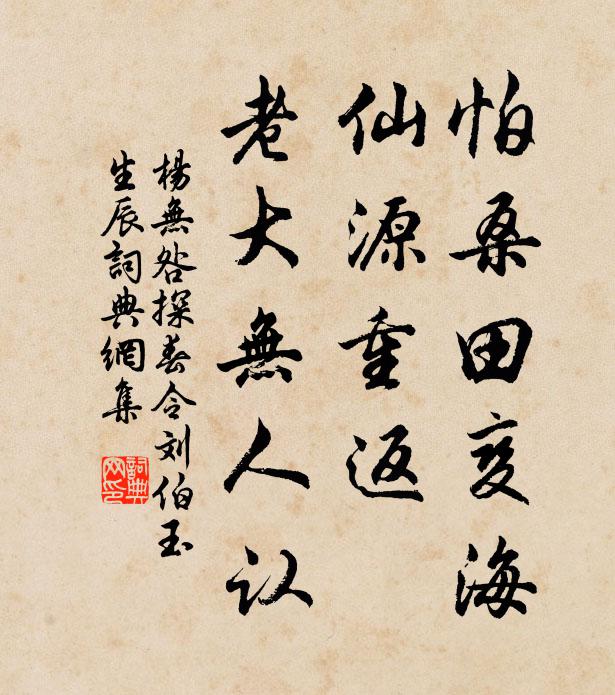 怕桑田变海
仙源重返
老大無人认
楊無咎探春令刘伯玉
生辰詞典網集
詞典
网印